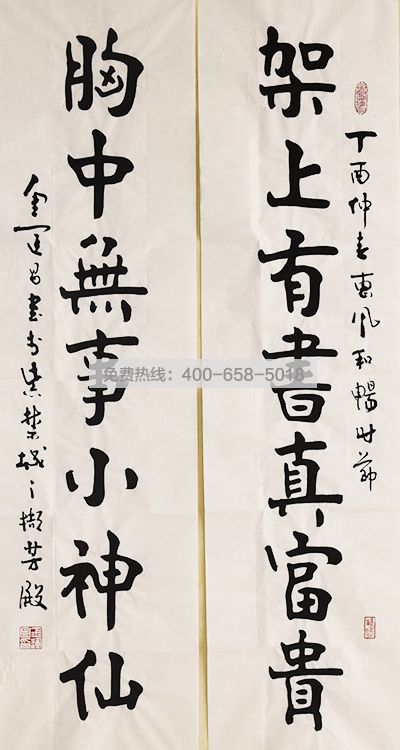 丁酉仲春惠风和暢时節
架上有書真富貴
胸中無事小神仙
金運昌書於紫禁城之擷芳殿
免费热线：400-658-5018